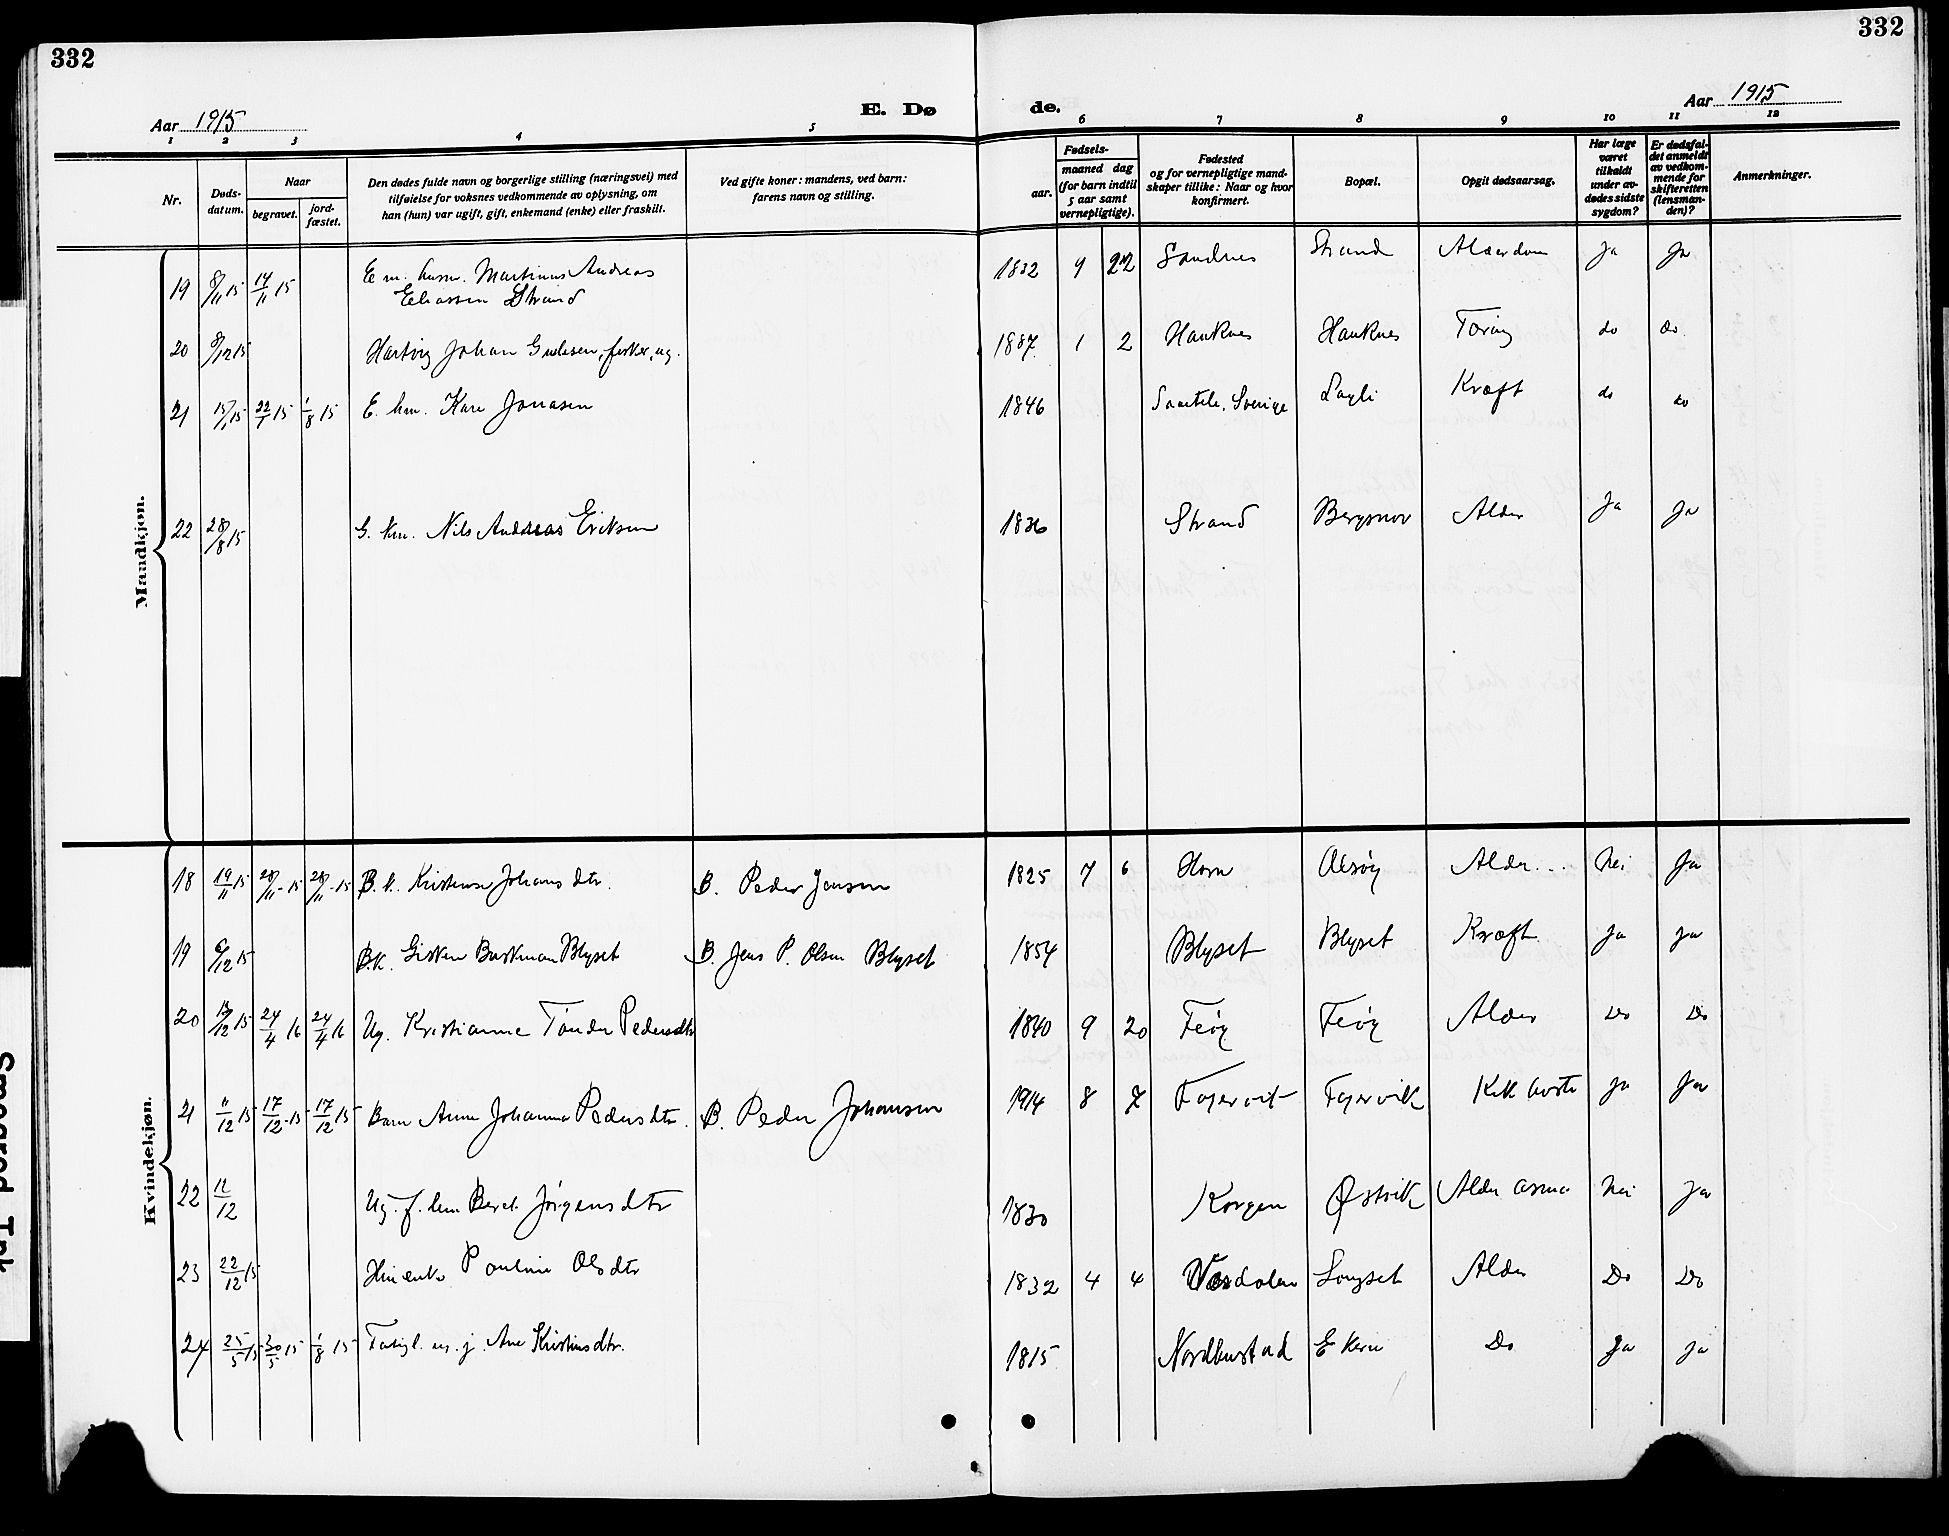 332
332
Aar 1915
E. Dø
de.
Aar 1915
1 2 3 4 5 6 7 8 9 10 11 12
Nr.
Døds-
datum.
Naar
begravet.
jord-
fæstet.
Den dødes fulde navn og borgerlige stilling (næringsvei) med
tilføielse for voksnes vedkommende av oplysning, om
han (hun) var ugift, gift, enkemand (enke) eller fraskilt.
Ved gifte koner: mandens, ved barn:
farens navn og stilling.
Fødsels-
aar.
maaned dag
(for barn indtil
5 aar samt
vernepligtige).
Fødested
og for vernepligtige mand-
skaper tillike: Naar og hvor
konfirmert.
Bopæl.
Opgit dødsaarsag.
Har læge
været
tilkaldt
under av-
dødes sidste
sygdom?
Er dødsfal-
det anmeldt
av vedkom-
mende for
skifteretten
(lensman-
den)?
Anmerkninger.
Mandkjøn.
19 8/11 15 14/11 15 E m. husm. Martinus Andreas
Eliassen Strand 1832 9 22 Sandnes Strand Alderdom Ja Ja
20 8/12 15 Hartvig Johan fisker, ug. 1887 1 2 Hauknes Hauknes Tæring do do
21 15/ 15 22/7 15 1/8 15 E. hm. Kare Jonasen 1846 Sverige Kræft do do
22 28/8 15 G. km. Nils Andreas Eriksen 1836 Strand Alder Ja Ja
Kvindekjøn.
18 19/11 15 28/11-15 28/11-15 B. k. Johansdtr. B. Peder Jensen 1825 7 6 Horn Alder... Nei Ja
19 6/12 15 B.k. Blyset B. Jens P. Olsen Blyset 1854 Blyset Blyset Kræft Ja Ja
20 12 15 24/4 16 24/4 16 Ug. Kristianne Tønder Pedersdtr 1840 9 20 Alder Do Do
21 11/12 15 17/12-15 17/12 15 Barn Anne Johanna Pedersdtr. B. Peder Johansen 1914 8 7 Fagervik Fagervik Kikhoste Ja Ja
22 11/12 Ug. f. lem Beret Jørgensdtr 1830 Korgen Østvik Alder asma Nei Ja
23 22/12 15 Pauline Olsdtr 1832 4 4 Alder Do Do
24 25/5 15 30/5 15 1/8 15 Ane Kristinsdtr. 1815 Ekern Do Ja Ja